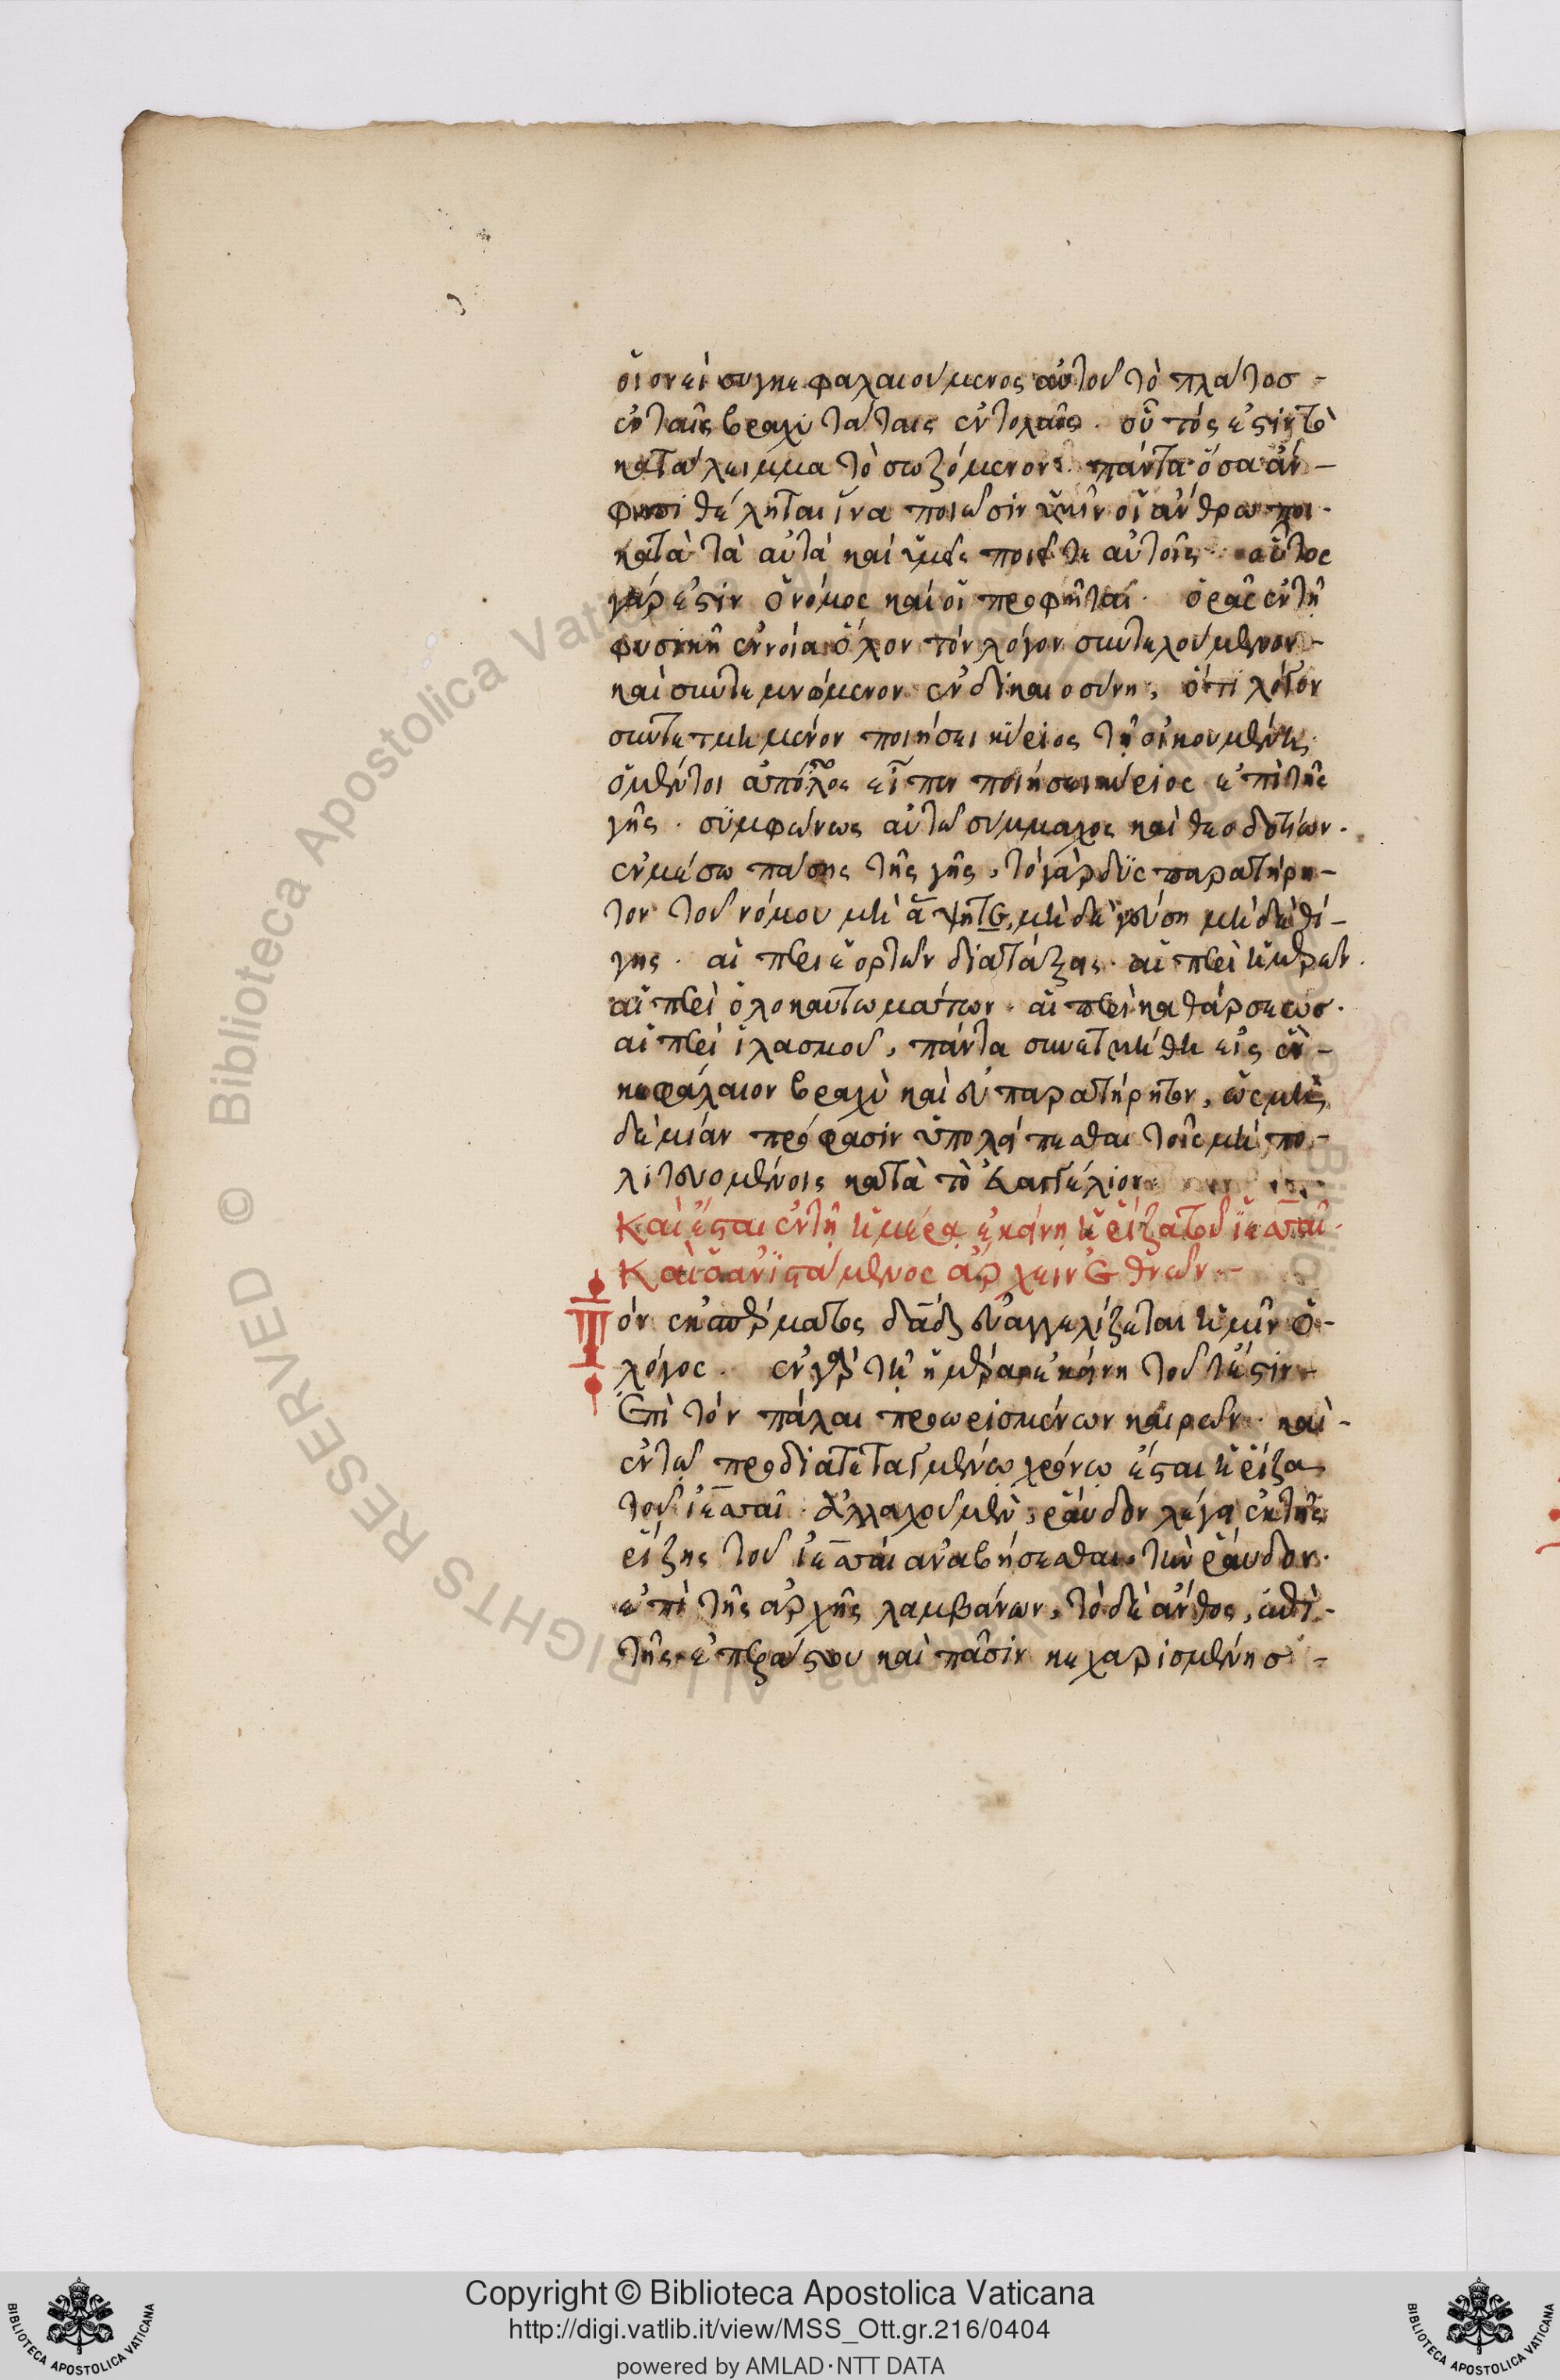 οἱονεὶ συγκεφαλαιούμενος αὐτοῦ τὸ πλάτοσ -
ἐν ταῖς βραχυτάταις ἐντολαῖς. οὗτός ἐστιν τὸ
κατάλειμμα τὸ σωζόμενον. πάντα ὅσα ἄν -
φησι θέλητε ἵνα ποιῶσιν ὑμῖν οἱ ἄνθρωποι.
κατὰ τὰ αὐτὰ καὶ ὑμεῖς ποιεῖτε αὐτοῖς. οὗτος
γάρ ἐστιν ὁ νόμος καὶ οἱ προφῆται. ὁρᾶς ἐν τῇ
φυσικῇ ἐννοίᾳ ὅλον τὸν λόγον συντελούμενον -
καὶ συντεμνόμενον ἐν δικαιοσύνῃ, ὅτι λόγον
συντετμημένον ποιήσει κύριος τῇ οἰκουμένῃ.
ὁ μέντοι ἀπόστολος εἶπεν ποιήσει κύριος ἐπὶ τῆς
γῆς. συμφώνως αὐτῷ σύμμαχος καὶ θεοδοτίων.
ἐν μέσῳ πάσης τῆς γῆς, τὸ γὰρ δυσπαρατήρη -
τον τοῦ νόμου μὴ ἅψηται, μηδὲ γεύσῃ μηδὲ θί -
γῃς. αἱ περὶ ἑορτῶν διατάξεις. αἱ περὶ ἡμερῶν.
αἱ περὶ ὁλοκαυτωμάτων. αἱ περὶ καθάρσεωσ.
αἱ περὶ ἱλασμοῦ, πάντα συνετμήθη εἰς ἓν -
κεφάλαιον βραχὺ καὶ εὐπαρατήρητον, ὡς μη
δεμίαν πρόφασιν ὑπολείπεσθαι τοῖς μὴ πο -
λιτευομένοις κατὰ τὸ εὐαγγέλιον
Καὶ ἔσται ἐν τῇ ἡμέρᾳ ἐκείνῃ ἡ ῥίζα τοῦ ἰεσσαί.
Καὶ ὁ ἀνιστάμενος ἄρχειν ἐθνῶν -
Τὸν ἐκ σπέρματος δαδ εὐαγγελίζεται ἡμῖν ὁ -
λόγος. ἐν γὰρ τῇ ἡμέρᾳ ἐκείνῃ τουτέστιν -
ἐπὶ τὸν πάλαι προωρισμένων καιρῶν. καὶ -
ἐν τῷ προδιατεταγμένῳ χρόνῳ ἔσται ἡ ῥίζα
τοῦ ἰεσσαί. ἀλλαχοῦ μὲν, ῥάβδον λέγει ἐκ τῆς
ῥίζης τοῦ ἰεσσαὶ ἀναβήσεσθαι. τὴν ῥάβδον.
ἐπὶ τῆς ἀρχῆς λαμβάνων, τὸ δὲ ἄνθος, ἐπὶ -
τῆς ἐπεράστου καὶ πᾶσιν κεχαρισμένησ -
Copyright © Biblioteca Apostolica Vaticana
http://digi.vatlib.it/view/MSS_Ott.gr.216/0404
powered by AMLAD·NTT DATA